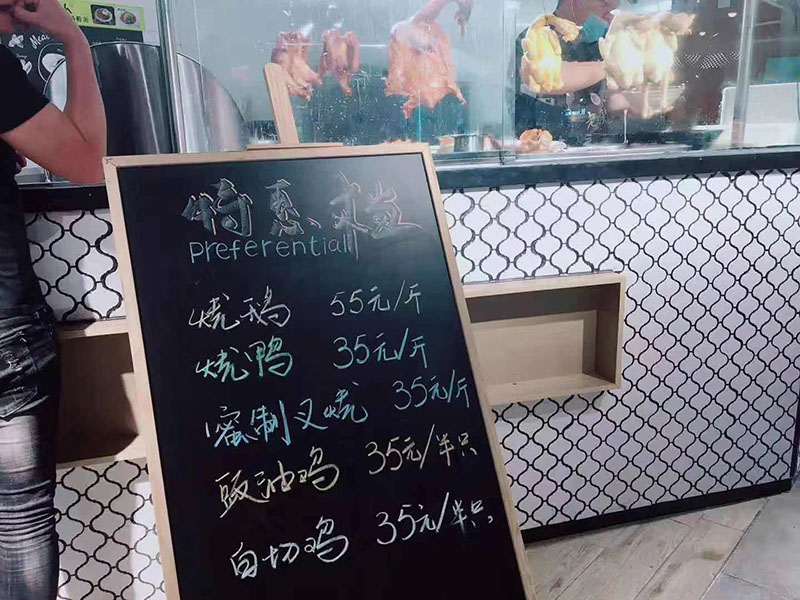 特惠
Preferential
烧鹅 55元/斤
烧鸭 35元/斤
蜜制叉烧 35元/斤
豉油鸡 35元/半只
白切鸡 35元/半只